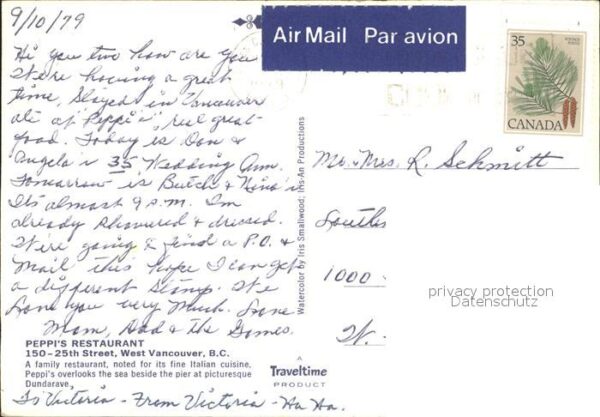 9/10/79
Hi you two how are you
We're having a great
time, Stayed in Vancouver
ate at "Peppi's", real great
food. Today is Don &
Angela's 35 Wedding Ann.
Tomorrow is Butch & Nina's
It's almost 9 a.m. I'm
already showered & dressed.
We're going to find a P.O. &
Mail this hope I can get
a different stamp. We
Love you very Much. Love
Mom, Dad & the Gomes.
PEPPI'S RESTAURANT
150-25th Street, West Vancouver, B.C.
A family restaurant, noted for its fine Italian cuisine,
Peppi's overlooks the sea beside the pier at picturesque
Dundarave.
To Victoria - From Victoria - Ha Ha.
Watercolor by Iris Smallwood; Iris-An Productions
A
Traveltime
PRODUCT
Air Mail Par avion
35
CANADA
Mr. Mrs. R. Schmitt
1000
W.
privacy protection
Datenschutz